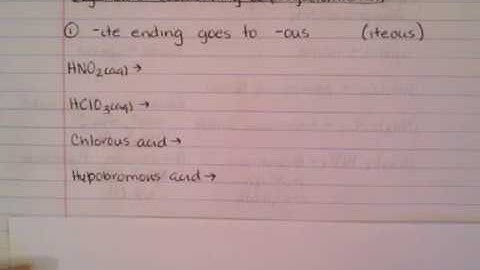 ① -ite ending goes to -ous (iteous)
HNO₂(aq) →
HClO₃(aq) →
Chlorous acid →
Hypobromous acid →